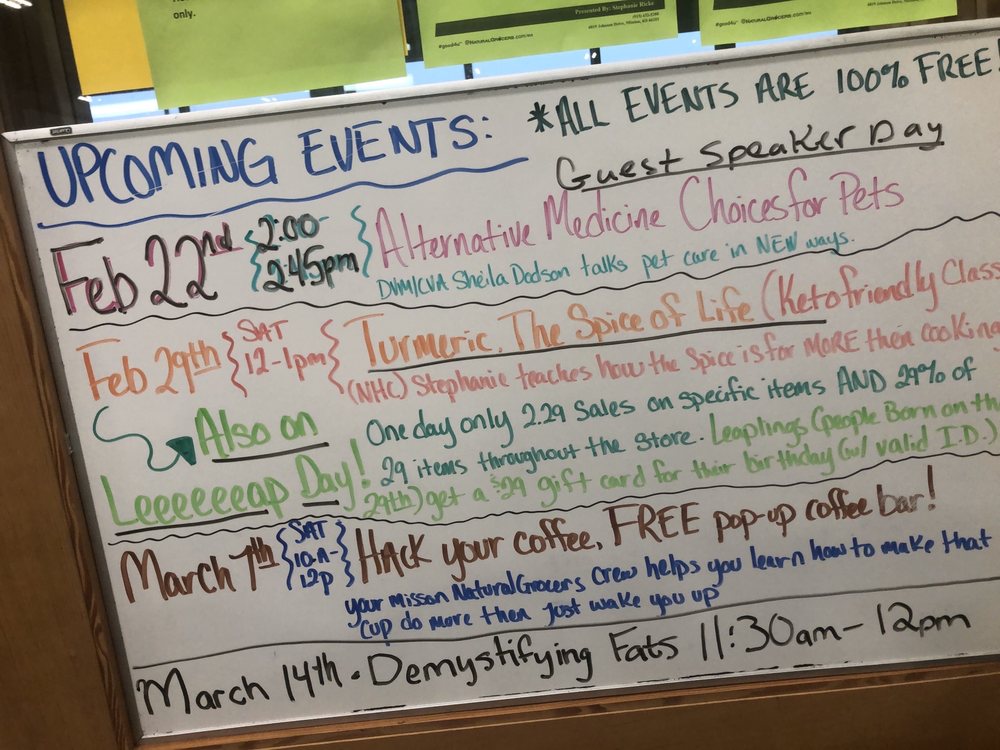 only.
Presented By: Stephanie Ricke
#good4u @NATURALGROCERS.com/ks
4819 Johnson Drive, Mission, KS 66205
#good4u @NATURALGROCERS.com/ks
4819 Johnson Drive, Mission, KS 66205
UPCOMING EVENTS:
*ALL EVENTS ARE 100% FREE!
Guest Speaker Day
Feb 22nd
2:00-
2:45pm
Alternative Medicine Choices for Pets
DVM/CVA Sheila Dodson talks pet care in NEW ways.
Feb 29th
SAT
12-1pm
Turmeric, The Spice of Life (Keto friendly Class
(NHC) Stephanie teaches how the Spice is for MORE then cooking
Also on
Leeeeeeap Day!
One day only 2.29 Sales on specific items AND 29% of
29 items throughout the Store. Leaplings (people Born on th
29th) get a $29 gift card for their birthday (w/ valid I.D.)
March 7th
SAT
10A-
12p
HACK your coffee, FREE pop-up coffee bar!
your Misson Natural Grocers Crew helps you learn how to make that
Cup do more then just wake you up
March 14th • Demystifying Fats 11:30am-12pm